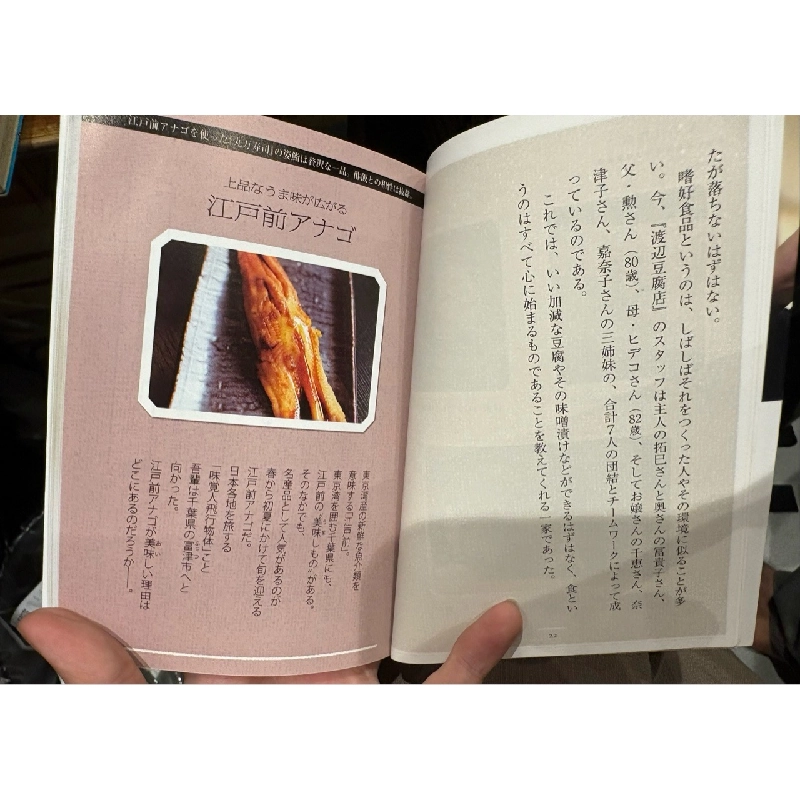 たが落ちないはずはない。
嗜好食品というのは、しばしばそれをつくった人やその環境に似ることが多
い。今、『渡辺豆腐店』のスタッフは主人の拓巳さんと奥さんの富貴子さん、
父・勲さん（80歳）、母・ヒデコさん（82歳）、そしてお嬢さんの千恵さん、奈
津子さん、嘉奈子さんの三姉妹の、合計7人の団結とチームワークによって成
っているのである。
これでは、いい加減な豆腐やその味噌漬けなどができるはずはなく、食とい
うのはすべて心に始まるものであることを教えてくれる一家であった。
江戸前アナゴを使った
の姿
は贅沢な一品。
上品なうま味が広がる
江戸前アナゴ
東京湾産の新鮮な魚介類を
意味する「江戸前」。
東京湾を囲む千葉県にも、
江戸前の“美味しもの”がある。
そのなかでも、
名産品として人気があるのが
春から初夏にかけて旬を迎える
江戸前アナゴだ。
日本各地を旅する
「味覚人飛行物体」こと
吾輩は千葉県の富津市へと
向かった。
江戸前アナゴが美味しい理由は
どこにあるのだろうか――。